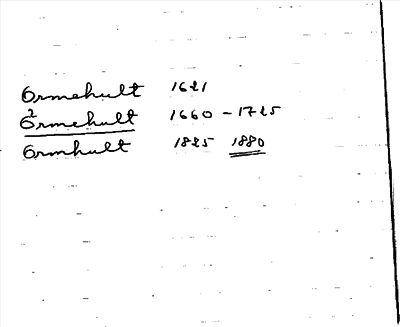 Ormehult 1621
2
Ormehult 1660 - 1725
Ormhult 1825 1880